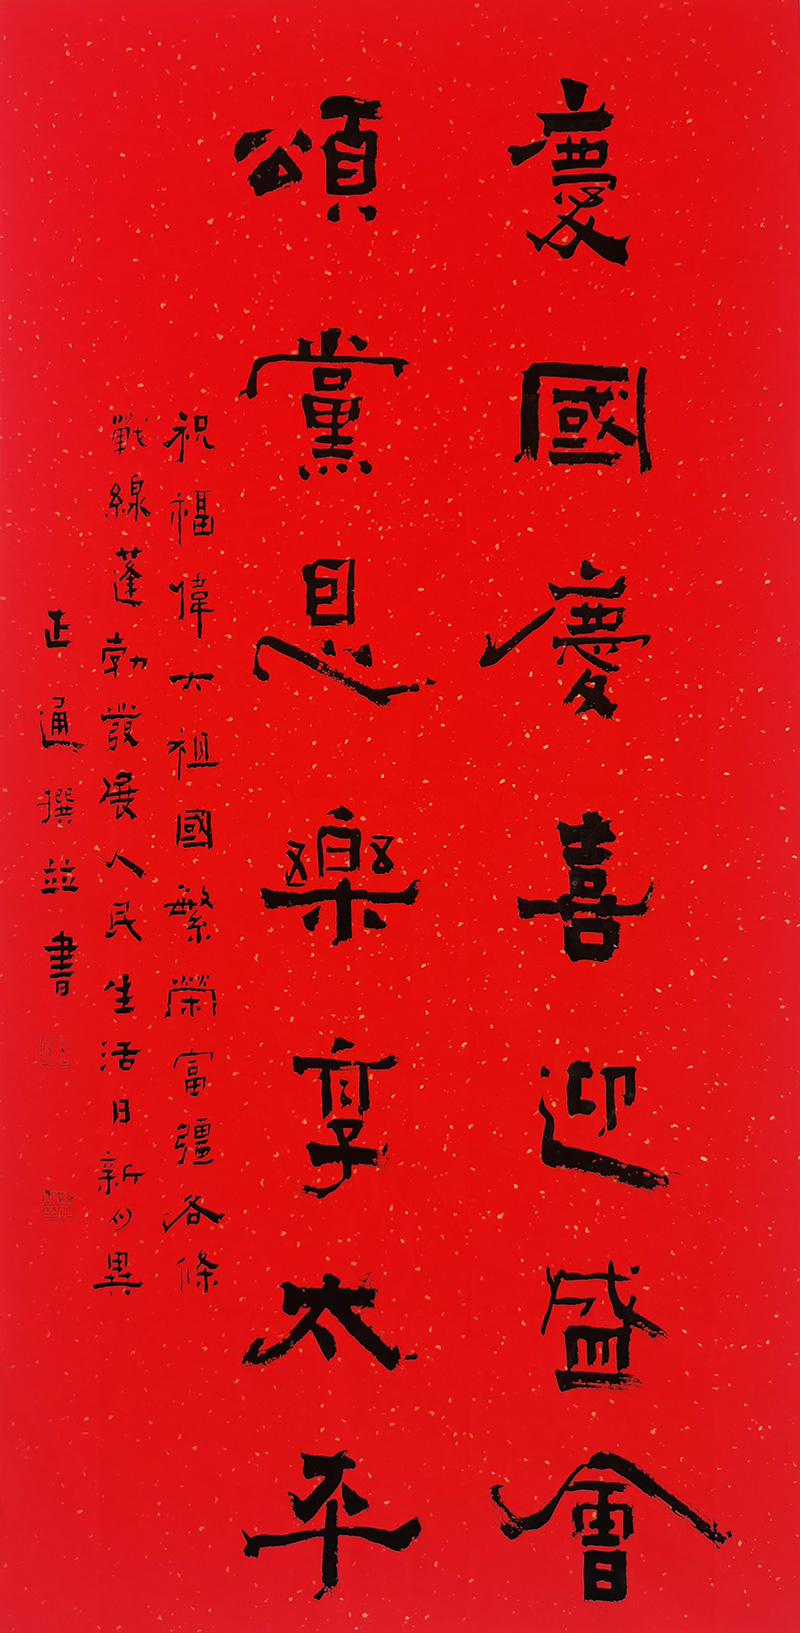 慶國慶喜迎盛會
頌黨恩樂享太平
祝福偉大祖國繁榮富疆各條
戰線蓬勃發展人民生活日新月異
正通撰並書